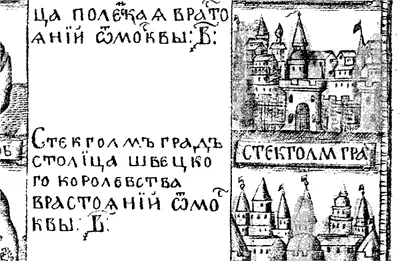 ца полская врасто
янїй ѿмоквы: в҃:
Стекголмъ градъ
столїца швецко
го королевства
врастоянїй ѿмо
квы: в҃:
стекголм гра
ов